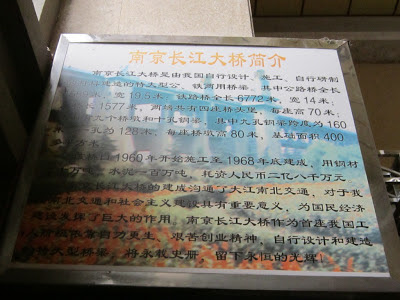 南京长江大桥简介
南京长江大桥是由我国自行设计、施工、自行研制
建造的特大型公、铁两用桥梁。其中公路桥全长
宽19.5米,铁路桥全长6772米,宽14米,
1577米,两端共有四座桥头堡,每座高70米;
九个桥墩和十孔钢梁,其中九孔钢梁跨度为160
孔为128米,每座桥墩高80米,基础面积400
米。
1960年开始施工至1968年底建成,用钢材
万吨、水泥一百万吨,耗资人民币二亿八千万元
长江大桥的建成沟通了大江南北交通,对于我
南北交通和社会主义建设具有重要意义,为国民经济
建设发挥了巨大的作用。南京长江大桥作为首座我国工
人阶级依靠自力更生、艰苦创业精神,自行设计和建造
的特大型桥梁,将永载史册,留下永恒的光辉!